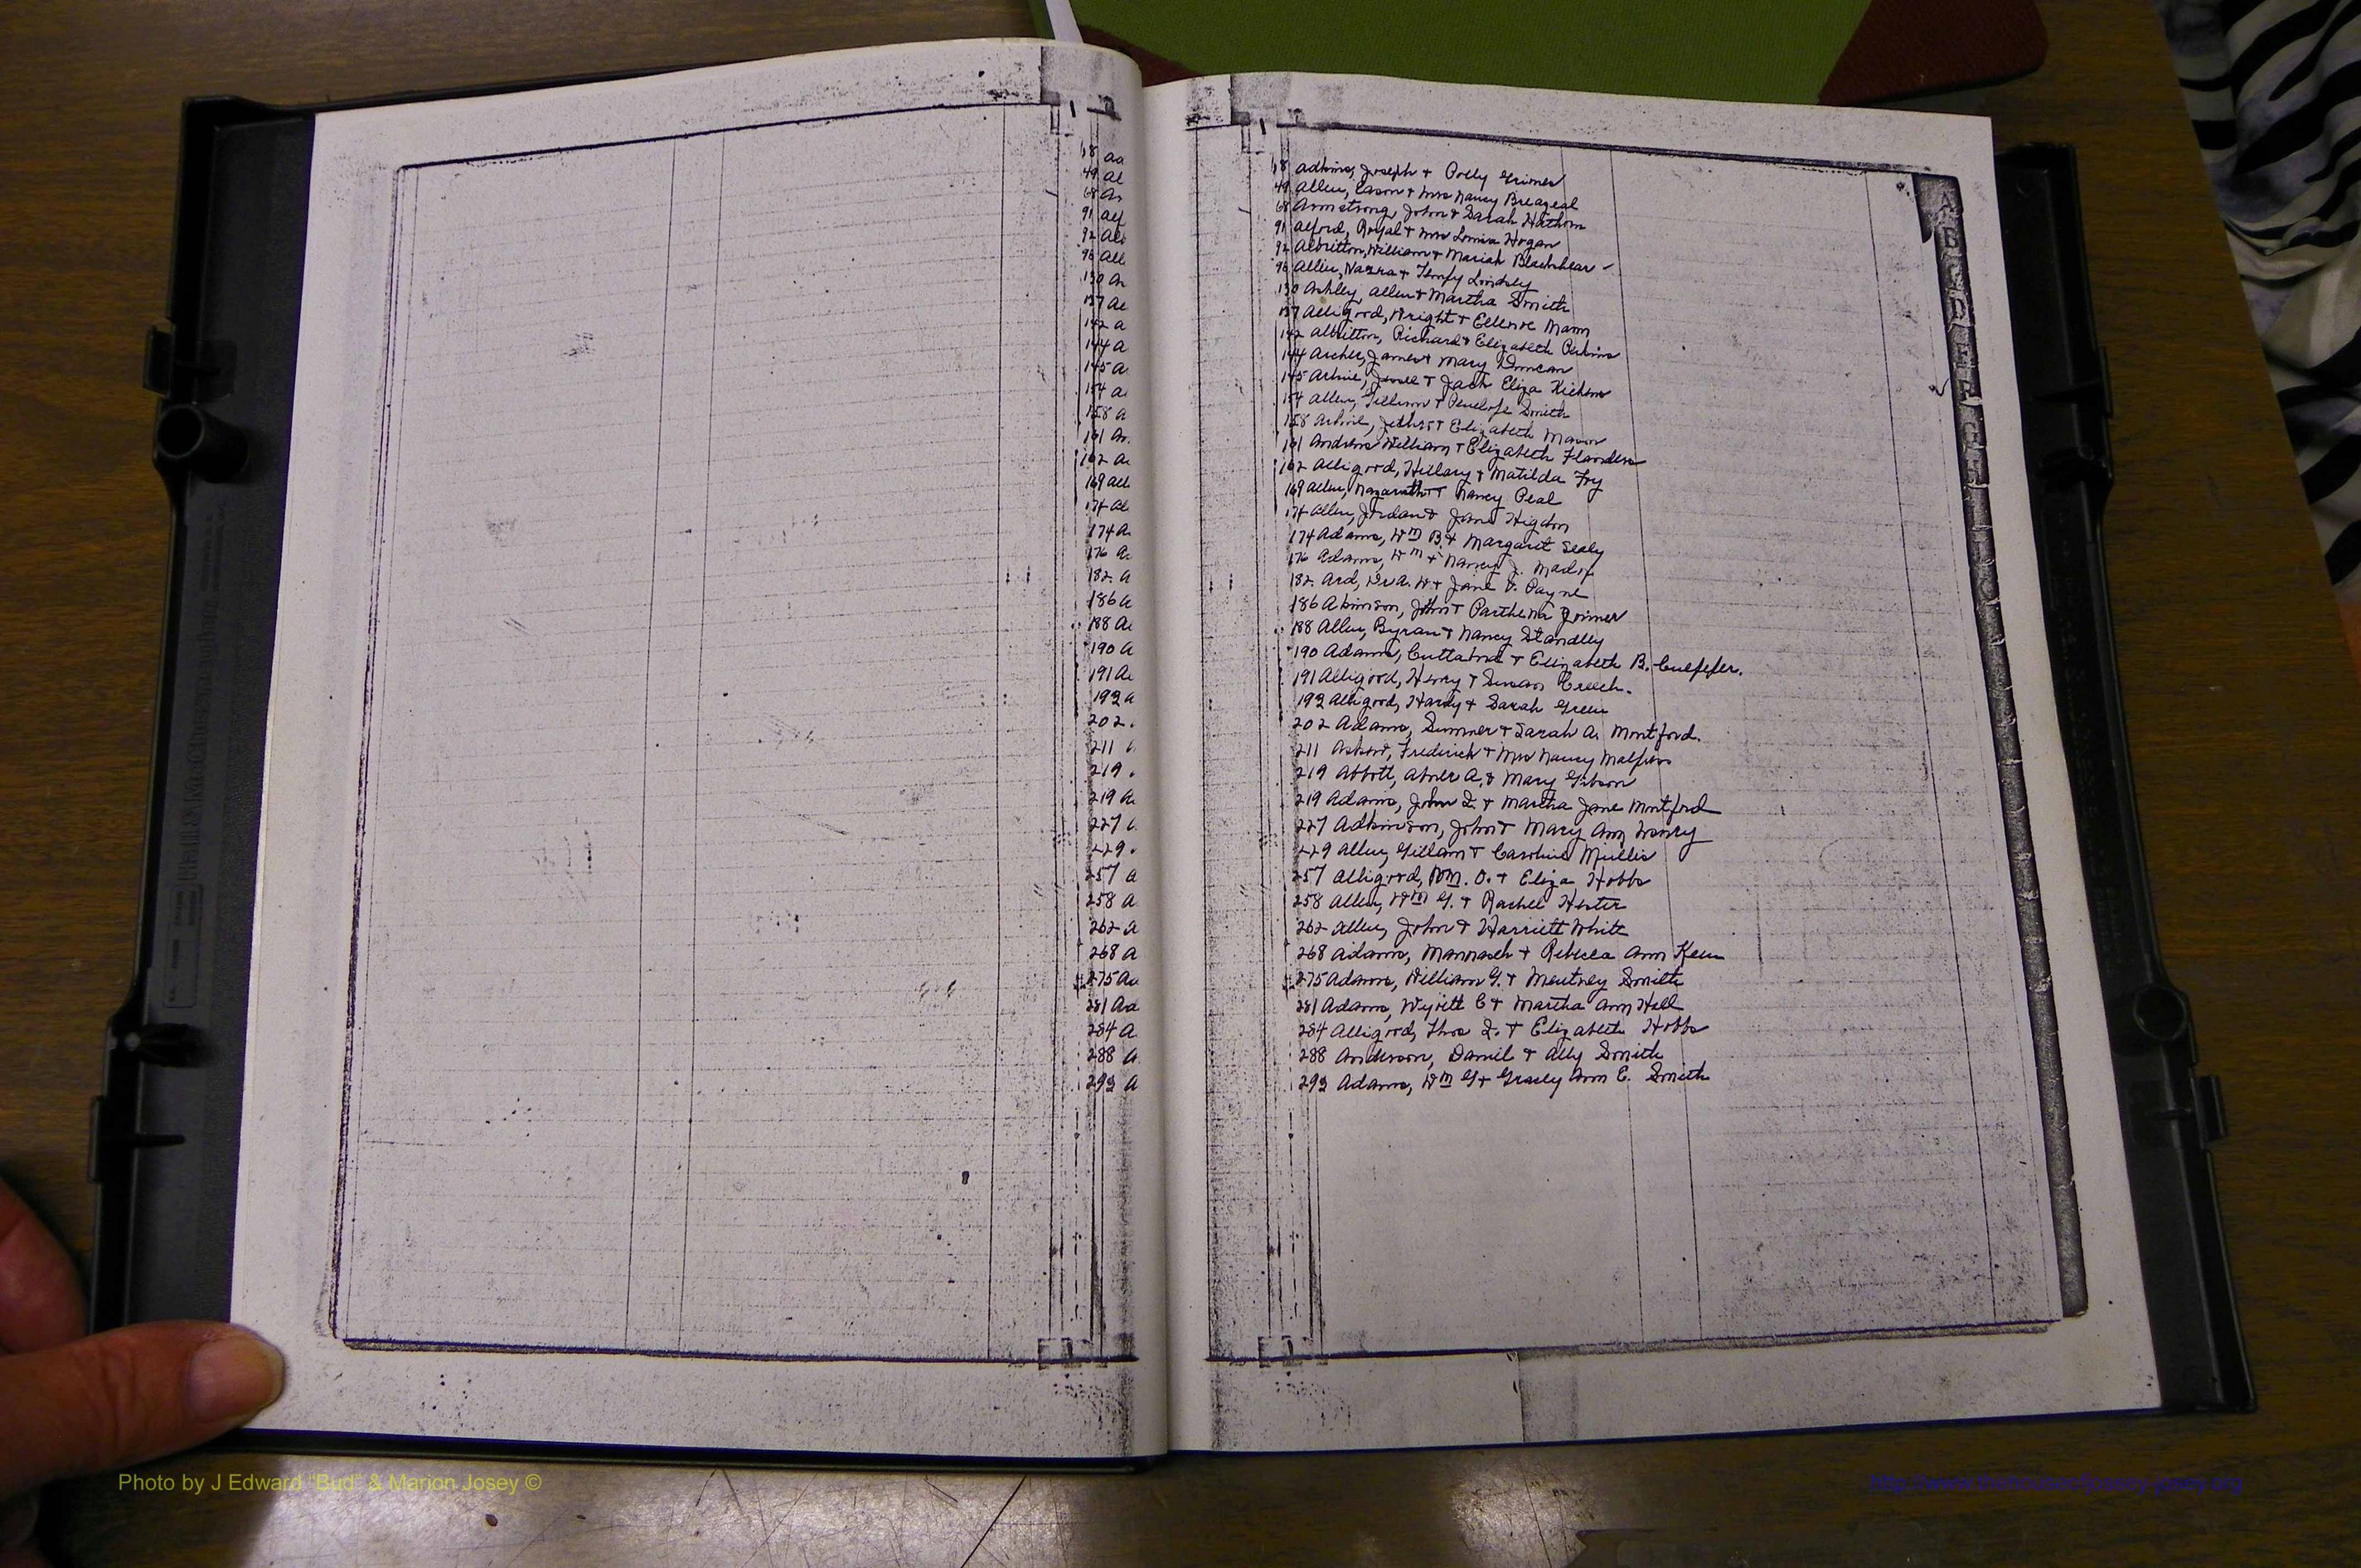 18 aa
49 al
68 An
91 alf
92 Alb
96 All
130 An
137 Al
142 a
144 A
145 A
154 a
158 a
161 An
162 A
169 all
174 al
174 A
176 A
182 A
186 A
188 A
190 A
191 A
192 A
202
211
219
219 A
227
229
257 a
258 A
262 a
268 A
275 Ad
281 Ad
284 A
288 A
293 A
18 Adkins, Joseph + Polly Grimes
49 Allen, Eason + Mrs Nancy Breazeal
68 Armstrong, John + Sarah Hathorn
91 Alford, Royal + Mrs Hogan
92 Albritton, William + Mariah Blackshear
96 Allen, Lindsey
130 Ashley, Allen + Martha Smith
137 Alligood, Wright + Mann
142 Albritton, Richard + Elizabeth Perkins
144 Archer, James + Mary Duncan
145 + Eliza
154 Allen, + Penelope Smith
158 + Elizabeth Mason
161 Andrews William + Elizabeth Flanders
162 Alligood, Hillary + Matilda Fry
169 Allen, Nazareth + Nancy Peal
174 Allen, Jordan + Jane Higdon
174 Adams, Wm B. + Margaret Sealy
176 Adams, Wm + Nancy J.
182 Ard, W + Jane V. Payne
186 Akinson, John + Parthena Joiner
188 Allen, Byran + Nancy Standley
190 Adams, + Elizabeth B. Culpeper.
191 Alligood, Henry + Susan Creech.
192 Alligood, Hardy + Sarah Green
202 Adams, Sumner + Sarah A. Montford.
211 Askew, Frederick + Mrs Nancy Malpass
219 Abbott, Abner A. & Mary Gibson
219 Adams, John Q. + Martha Jane Montford
227 Adkinson, John + Mary Ann
229 Allen, Gillam + Caroline Mullis
257 Alligood, Wm. O. + Eliza Hobbs
258 Allen, Wm G. + Rachel Hester
262 Allen, John & Harriett White
268 Adams, + Rebecca Ann Keen
275 Adams, William G. + Smith
281 Adams, Wyett C + Martha Ann Hall
284 Alligood, Thos Q. + Elizabeth Hobbs
288 Anderson, Daniel + Ally Smith
293 Adams, Wm G + Ann E. Smith
Photo by J Edward "Bud" & Marion Josey ©
http://www.thehouseofjossey-josey.org